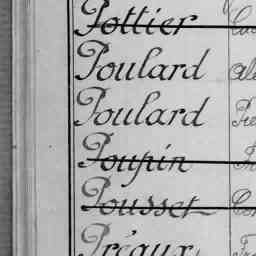 Pottier
Poulard
Poulard
Poupin
Pousset
Préaux